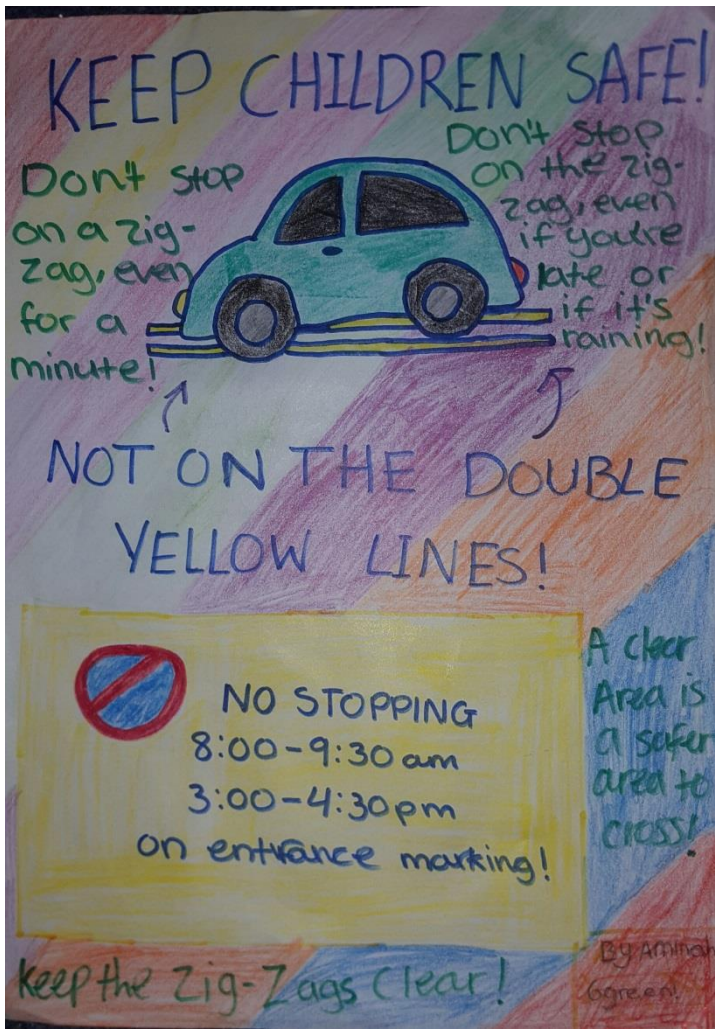 KEEP CHILDREN SAFE!
Don't stop
on a zig-
zag, even
for a
minute!
Don't stop
on the zig-
zag, even
if you're
late or
if it's
raining!
NOT ON THE DOUBLE
YELLOW LINES!
NO STOPPING
8:00-9:30am
3:00-4:30pm
on entrance marking!
A clear
Area is
a safer
area to
cross!
Keep the Zig-Zags Clear!
By Aminah
6green!